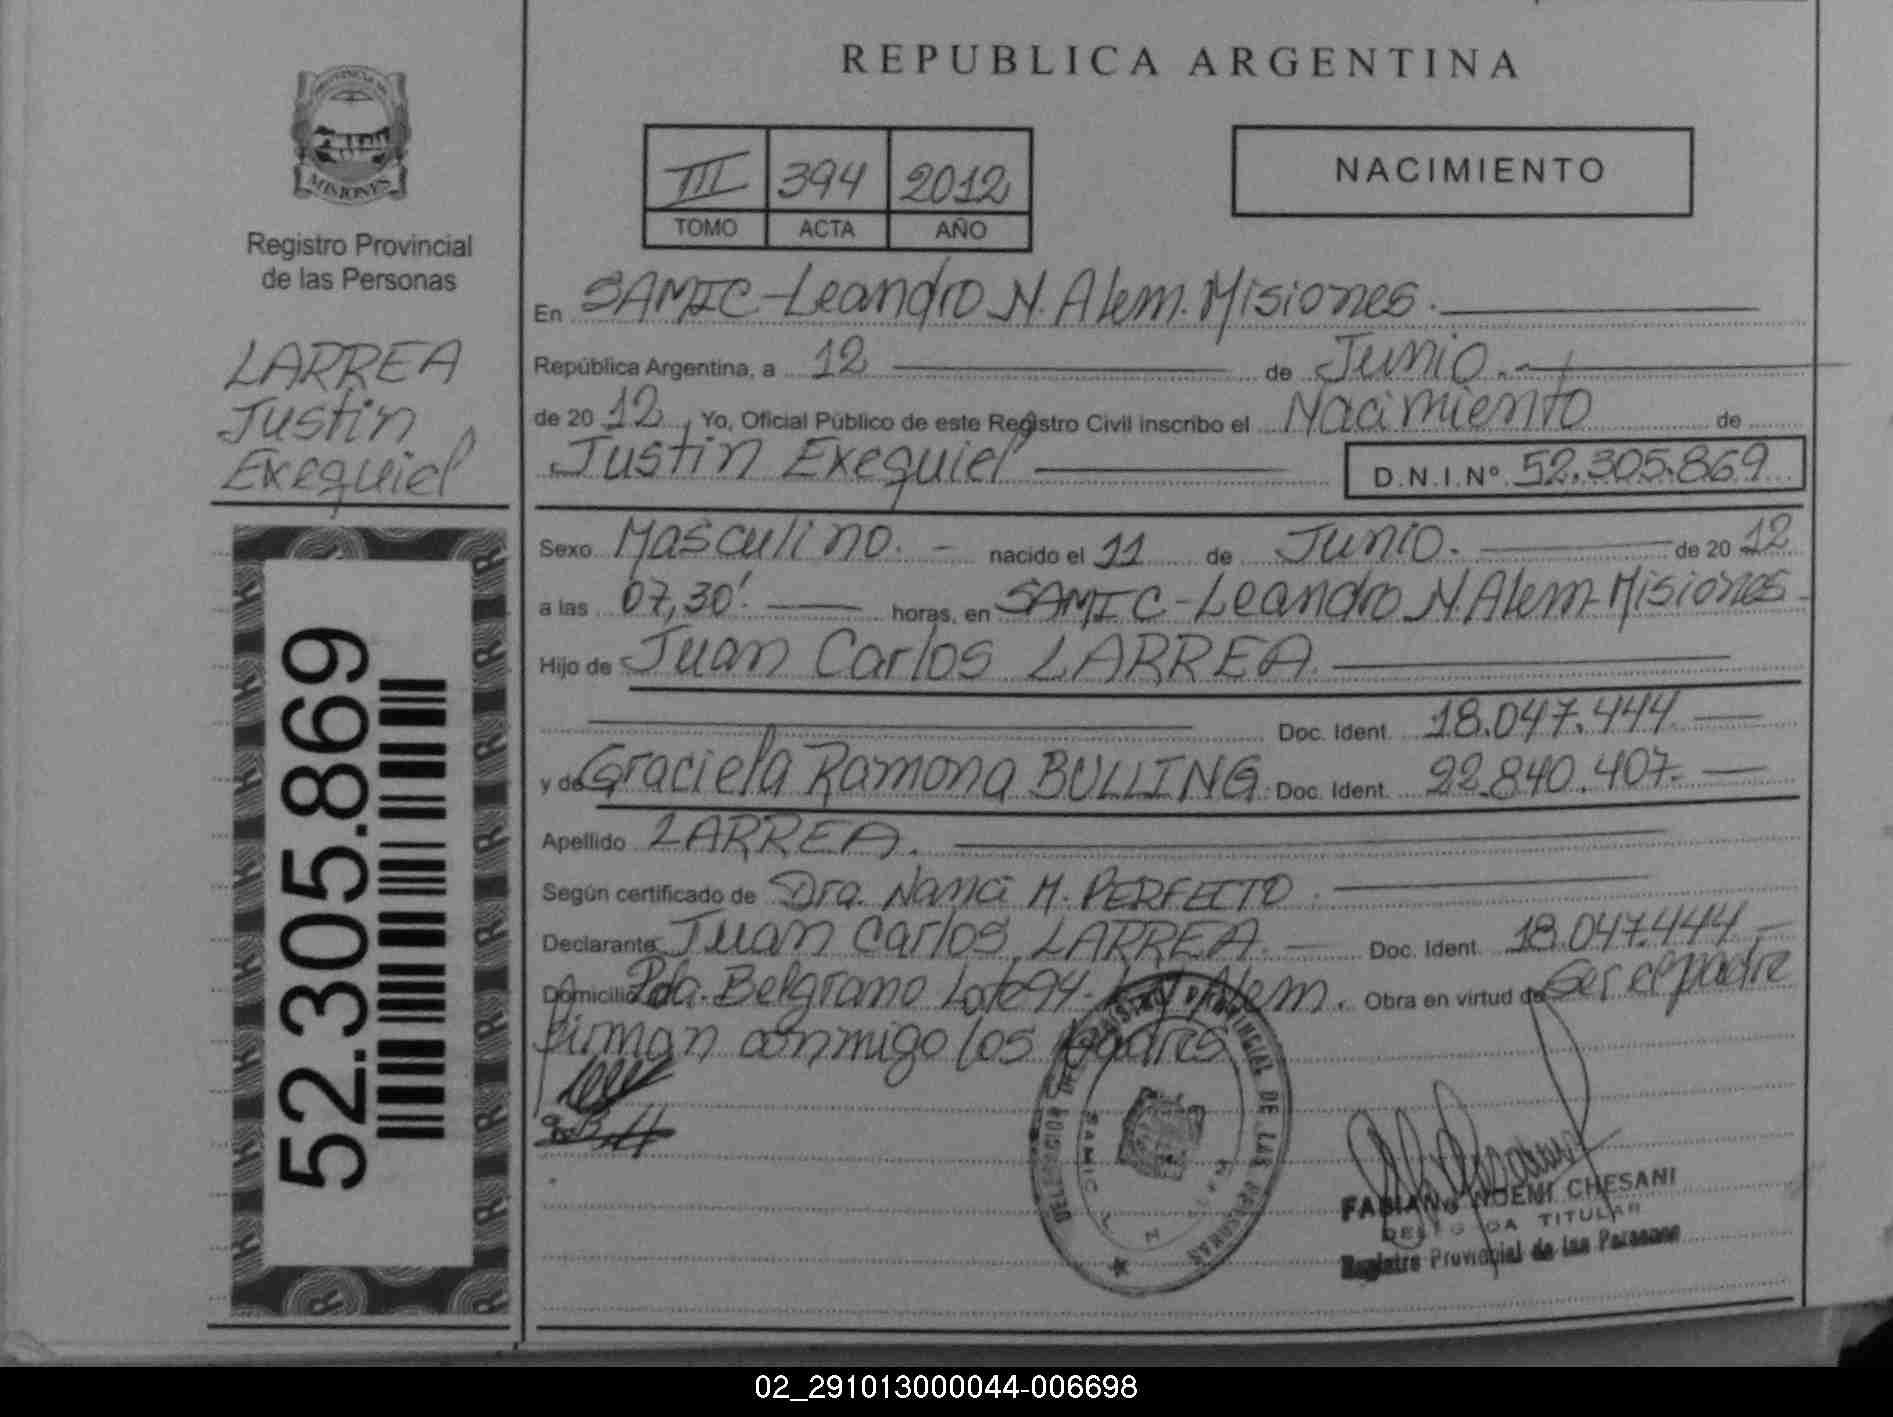 REPUBLICA ARGENTINA
PROVINCIA DE
MISIONES
Registro Provincial
de las Personas
LARREA
Justin
Exequiel
52.305.869
III 394 2012
TOMO ACTA AÑO
NACIMIENTO
En SAMIC-Leandro N. Alem. Misiones.
República Argentina, a 12 de Junio.
de 2012, Yo, Oficial Público de este Registro Civil inscribo el Nacimiento de
Justin Exequiel D.N.I.Nº 52.305.869
Sexo Masculino. nacido el 11 de Junio. de 2012
a las 07,30'. horas, en SAMIC-Leandro N. Alem-Misiones
Hijo de Juan Carlos LARREA.
Doc. Ident. 18.047.444
y de Graciela Ramona BULLING. Doc. Ident. 22.840.407.
Apellido LARREA.
Según certificado de Dra. Nanci M. PERFECTO.
Declarante Juan Carlos LARREA. Doc. Ident. 18.047.444
Domicilio Pda. Belgrano Lote 94- Alem. Obra en virtud de ser el padre
firman conmigo los padres
REGISTRO PROVINCIAL DE LAS PERSONAS
SAMIC L N ALEM
FABIANA NOEMI CHESANI
DELEGADA TITULAR
Registro Provincial de las Personas
02_291013000044-006698